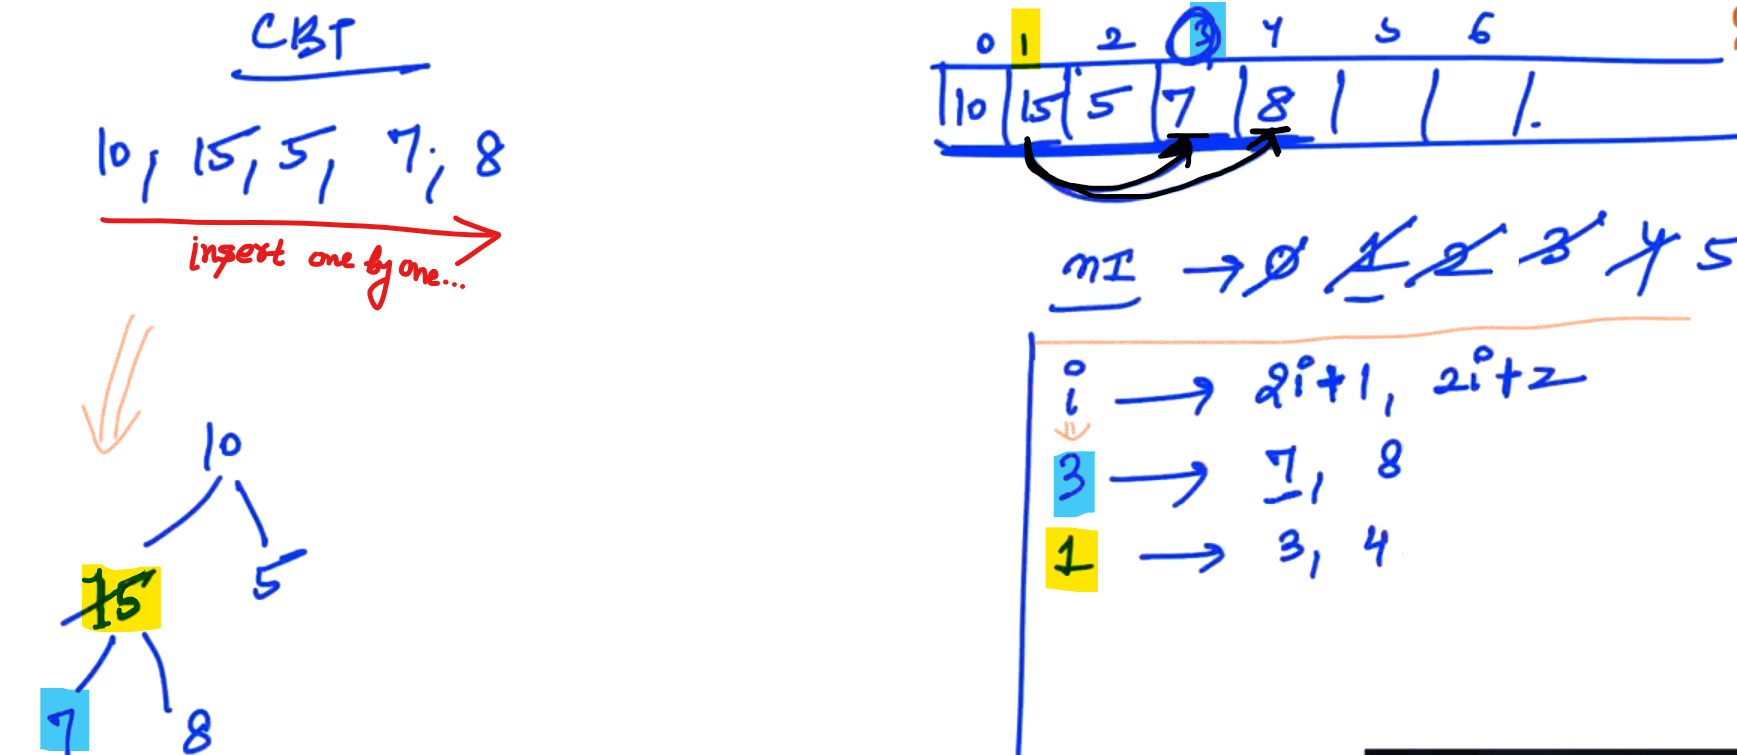 CBT
10, 15, 5, 7, 8
insert one by one...
10
15 5
7 8
0 1 2 3 4 5 6
10 15 5 7 8
nI → 0 1 2 3 4 5
i → 2i+1, 2i+2
3 → 7, 8
1 → 3, 4